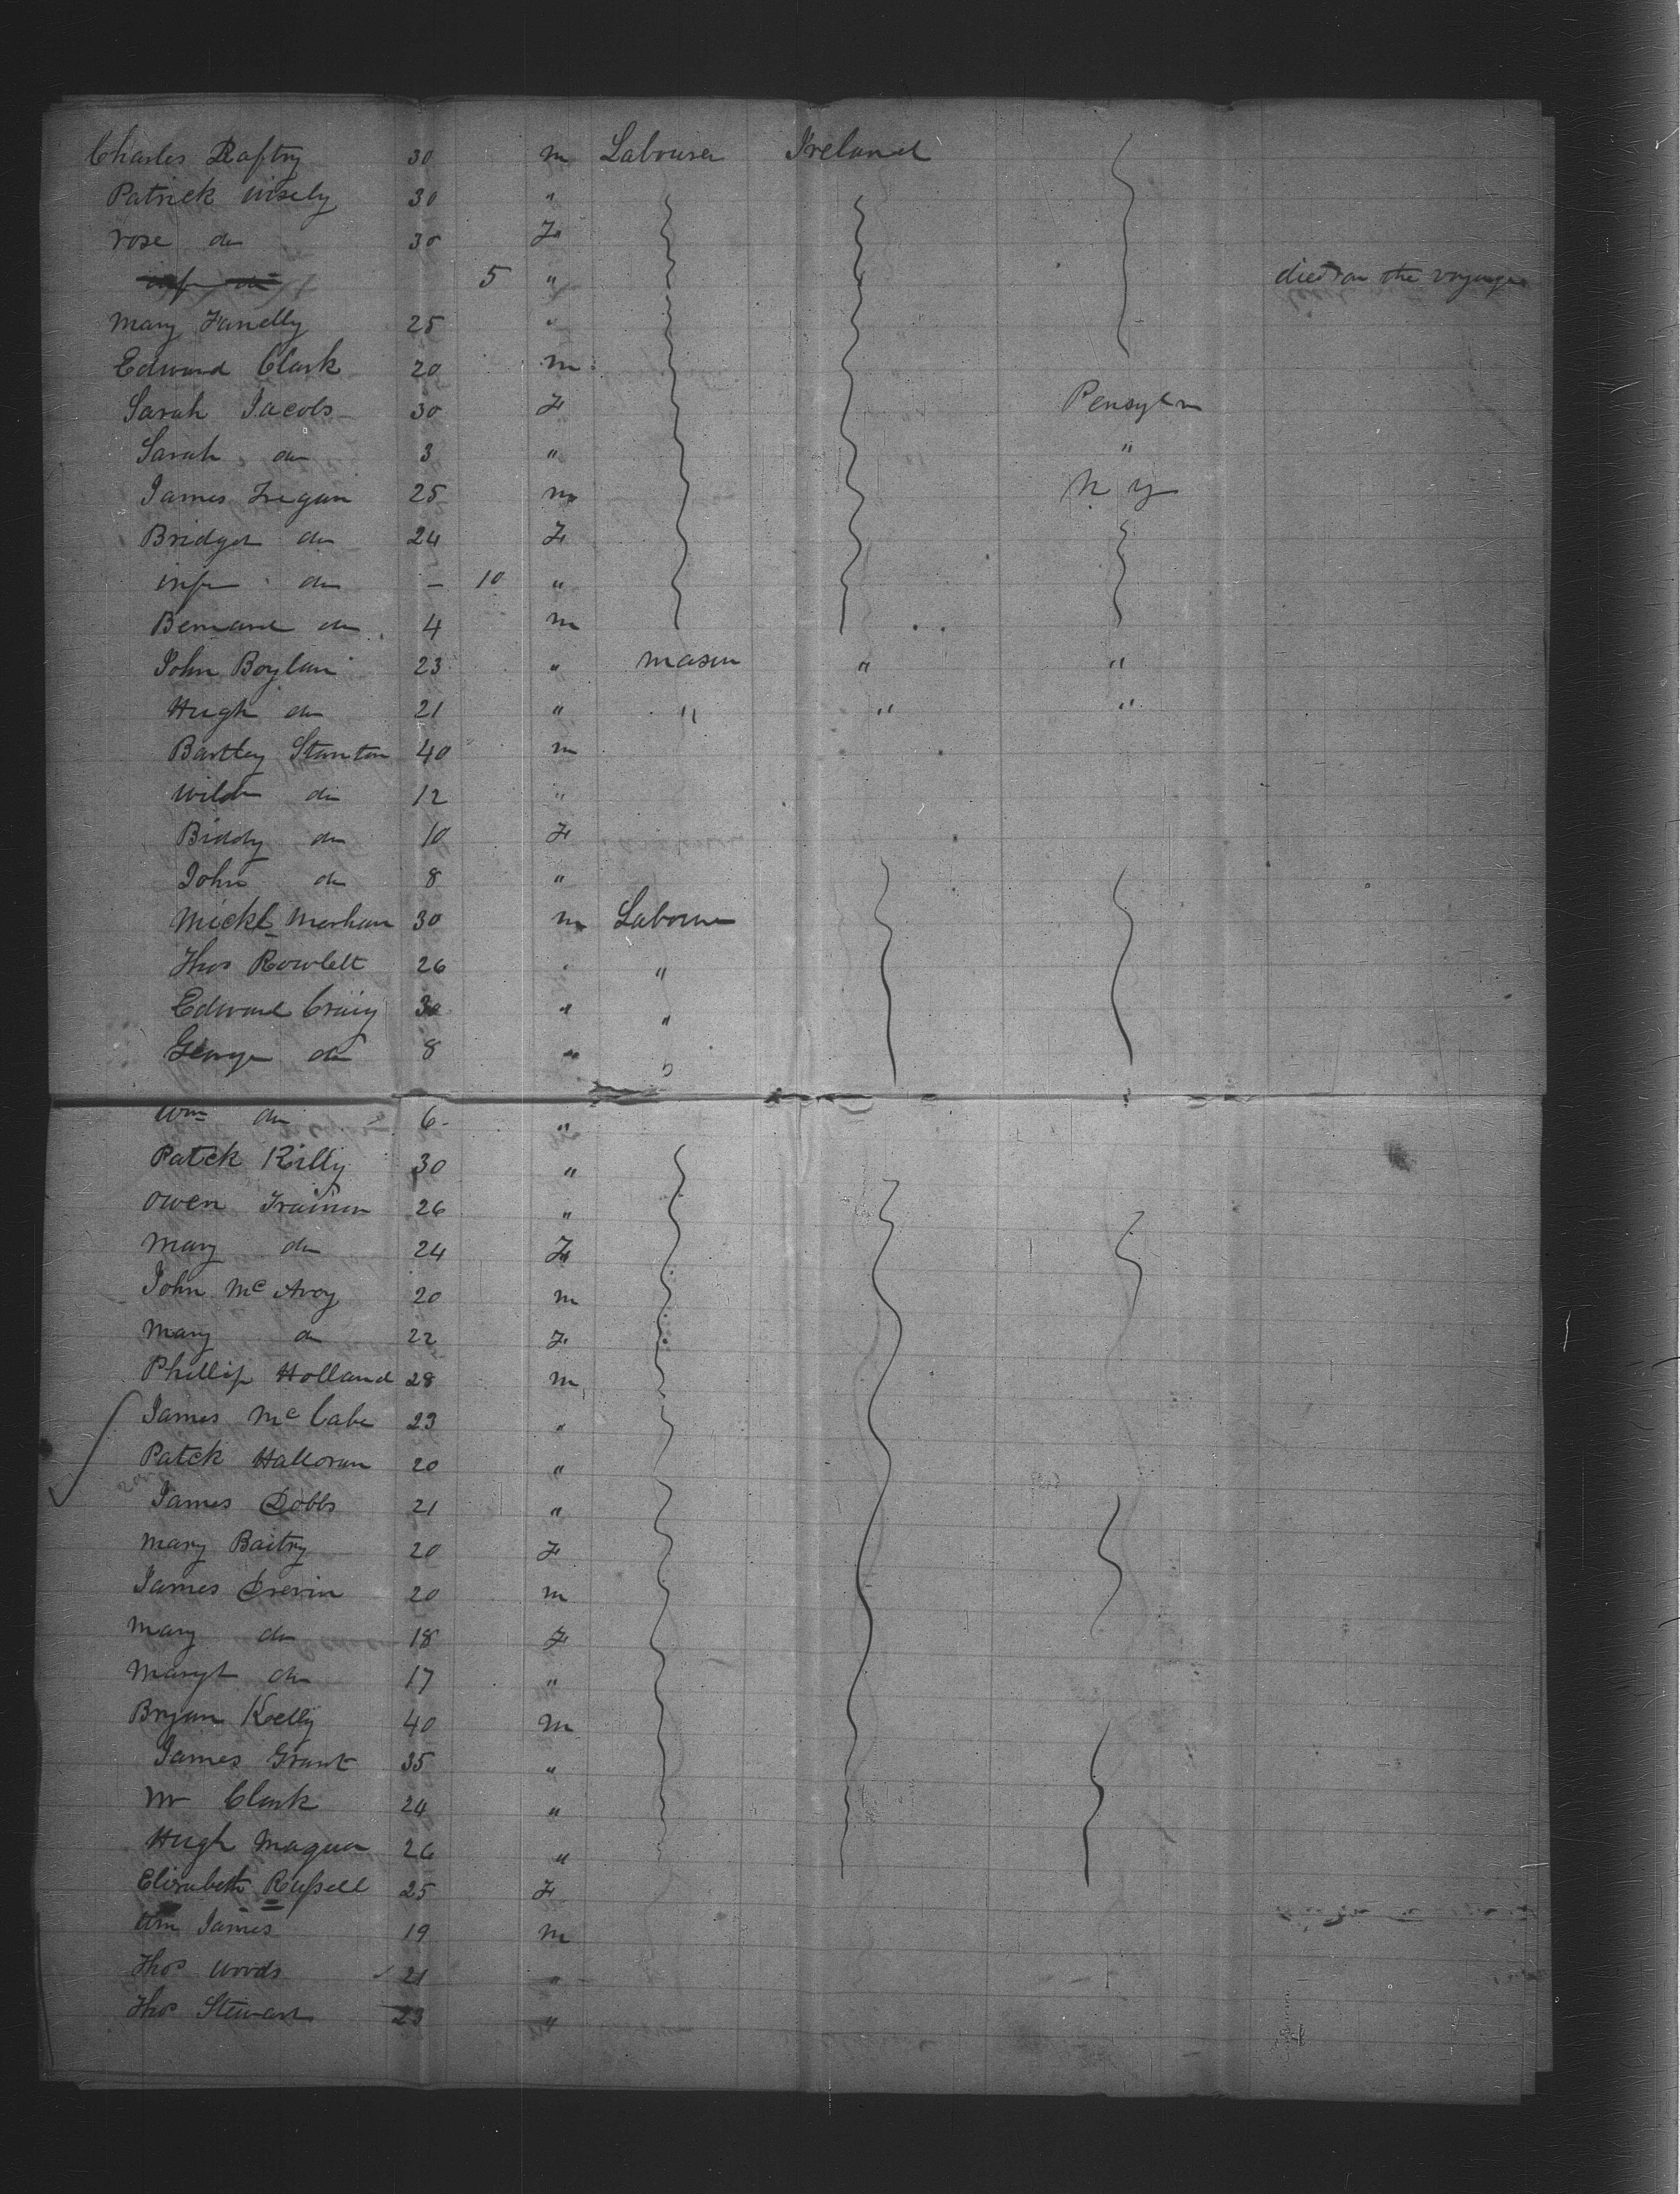 Charles Raftry 30 m Labourer Ireland
Patrick Wisely 30 "
rose do 30 F
inf do 5 " died on the voyage
Mary Fanelly 25 "
Edward Clark 20 m
Sarah Jacobs 30 F Pensylvn
Sarah do 3 " "
James Fregan 25 m N Y
Bridget do 24 F
inft do – 10 "
Bernard do 4 m
John Boylan 23 " mason " "
Hugh do 21 " " " "
Bartley Stanton 40 m
do 12 "
Biddy do 10 F
John do 8 "
Mickl Morhan 30 m Labourer
Thos Rowlett 26 " "
Edward Craig 30 " "
George do 8 " "
Wm do 6 "
Patck Killy 30 "
Owen Trainon 26 "
Mary do 24 F
John McAvoy 20 m
Mary do 22 F
Phillip Holland 28 m
James McCabe 23 "
Patck Halloran 20 "
James Dobbs 21 "
Mary Baitry 20 F
James Drevin 20 m
Mary do 18 F
Margt do 17 "
Bryan Kelly 40 m
James Grant 35 "
Clark 24 "
Hugh Maguer 26 "
Elizabeth Russell 25 F
Wm James 19 m
Thos Woods 21 "
Thos Stewart 23 "